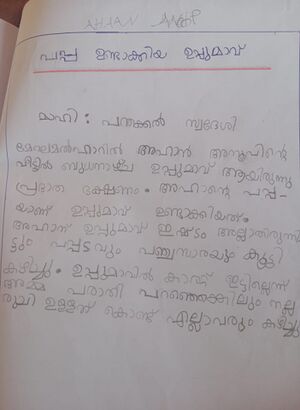 AHAAN
പപ്പ ഉണ്ടാക്കിയ ഉപ്പുമാവ്
മാഹി : പന്തക്കൽ സ്വദേശി
മേഘമൽഹാറിൽ അഹാൻ അനൂപിന്റെ
വീട്ടിൽ ബുധനാഴ്ച ഉപ്പുമാവ് ആയിരുന്നു
പ്രഭാത ഭക്ഷണം. അഹാന്റെ പപ്പ-
യാണ് ഉപ്പുമാവ് ഉണ്ടാക്കിയത്.
അഹാന് ഉപ്പുമാവ് ഇഷ്ടം അല്ലാതിരുന്നി
ട്ടും പപ്പടവും പഞ്ചസാരയും കൂട്ടി
കഴിച്ചു. ഉപ്പുമാവിൽ കാരറ്റ് ഇട്ടില്ലെന്ന്
അമ്മ പരാതി പറഞ്ഞെങ്കിലും നല്ല
രുചി ഉള്ളത് കൊണ്ട് എല്ലാവരും കഴിച്ചു